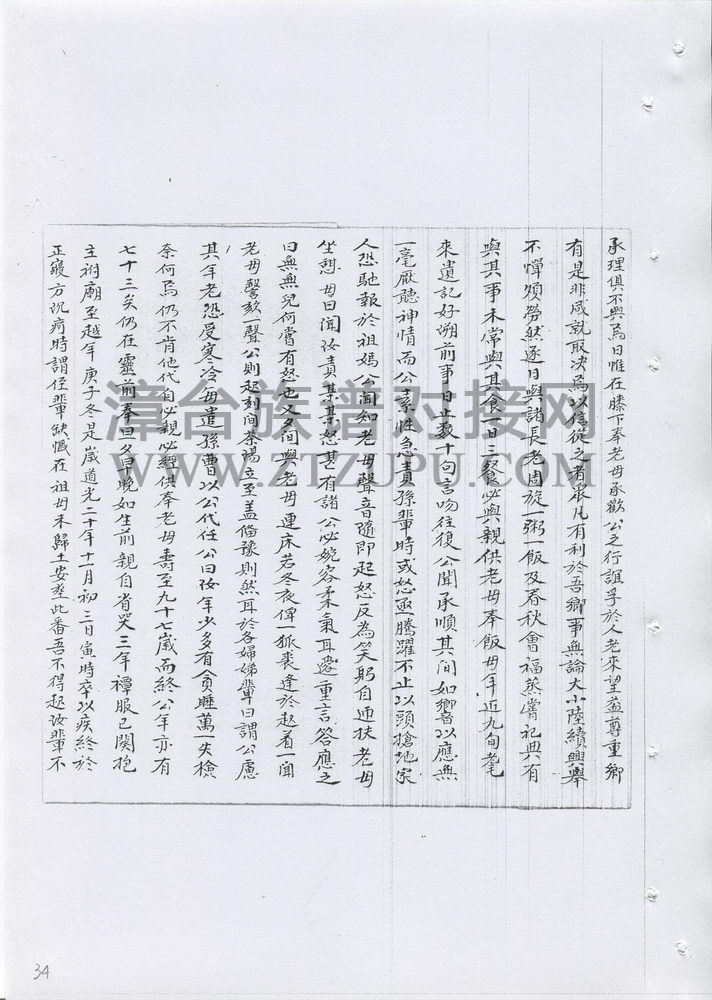 承理俱不與焉日惟在膝下奉老母承歡公之行誼孚於人老來望益尊重鄉
有是非咸就取決焉以信從之者眾凡有利於吾鄉事無論大小陸續興舉
不憚煩勞然逐日與諸長老周旋一粥一飯及春秋會福蒸嘗祀典只有
與其事未常與其食一日三餐必與親供老母奉飯母年近九旬耄
來遺記好溯前事日止數十句言吻往復公聞承順其間如響以應無
一毫厭聽神情而公素性急責孫輩時或怒亟騰躍不止以頭搶地家
人恐馳報於祖媽公聞知老母聲音隨即起怒反為笑躬自迎扶老母
坐憩母曰聞汝責某某怒甚有諸公必婉容柔氣耳邊重言答應之
曰無無兒何嘗有怒也又夕間與老母連床若冬夜俾一狐裘逢於起着一聞
老母謦欬一聲公則起刻間茶湯立至盖脩豫則然耳於各婦娣輩曰謂公慮
其年老恐受寒冷母遣孫曹以公代任公曰汝年少多有貪睡萬一失檢
奈何焉仍不肯他代自必親必經供奉老母壽至九十七歲而終公年亦有
七十三矣仍在靈前奉旦夕昂晚如生前親自省哭三年禫服已闋抱
主祔廟至越年庚子冬是歲道光二十年十一月初三日寅時卒以疾終於
正寢方沉疴時謂侄輩缺憾在祖母未歸土安塋此番吾不得起汝輩不
34
漳台族谱对接网
WWW.ZTZUPU.COM